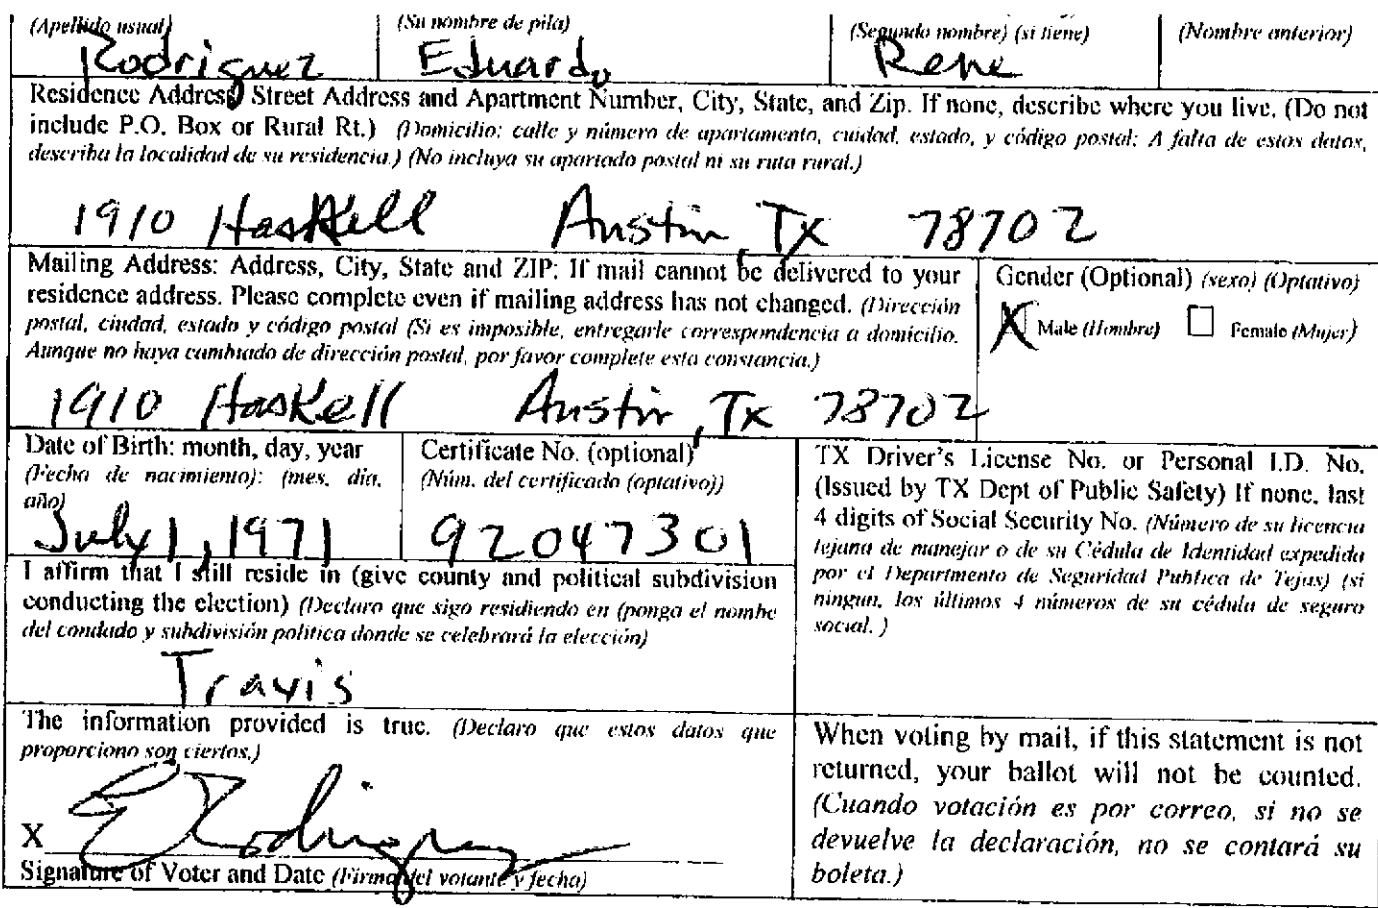 (Apellido usual)
Rodriguez
(Su nombre de pila)
Eduardo
(Segundo nombre) (si tiene)
Rene
(Nombre anterior)
Residence Address Street Address and Apartment Number, City, State, and Zip. If none, describe where you live. (Do not
include P.O. Box or Rural Rt.) (Domicilio: calle y número de apartamento, cuidad, estado, y código postal: A falta de estos datos,
describa la localidad de su residencia.) (No incluya su apartado postal ni su ruta rural.)
1910 Haskell Austin, TX 78702
Mailing Address: Address, City, State and ZIP: If mail cannot be delivered to your
residence address. Please complete even if mailing address has not changed. (Dirección
postal, ciudad, estado y código postal (Si es imposible, entregarle correspondencia a domicilio.
Aunque no haya cambiado de dirección postal, por favor complete esta constancia.)
1910 Haskell Austin, Tx 78702
Gender (Optional) (sexo) (Optativo)
X Male (Hombre) Female (Mujer)
Date of Birth: month, day, year
(Fecha de nacimiento): (mes, dia,
año)
July 1, 1971
Certificate No. (optional)
(Núm. del certificado (optativo))
92047301
TX Driver's License No. or Personal I.D. No.
(Issued by TX Dept of Public Safety) If none, last
4 digits of Social Security No. (Número de su licencia
tejana de manejar o de su Cédula de Identidad expedida
por el Departmento de Seguridad Publica de Tejas) (si
ningun, los últimos 4 números de su cédula de seguro
social. )
I affirm that I still reside in (give county and political subdivision
conducting the election) (Declaro que sigo residiendo en (ponga el nombe
del condado y subdivisión politica donde se celebrará la elección)
Travis
The information provided is true. (Declaro que estos datos que
proporciono son ciertos.)
X E Rodriguez
Signature of Voter and Date (Firma del votante y fecha)
When voting by mail, if this statement is not
returned, your ballot will not be counted.
(Cuando votación es por correo, si no se
devuelve la declaración, no se contará su
boleta.)